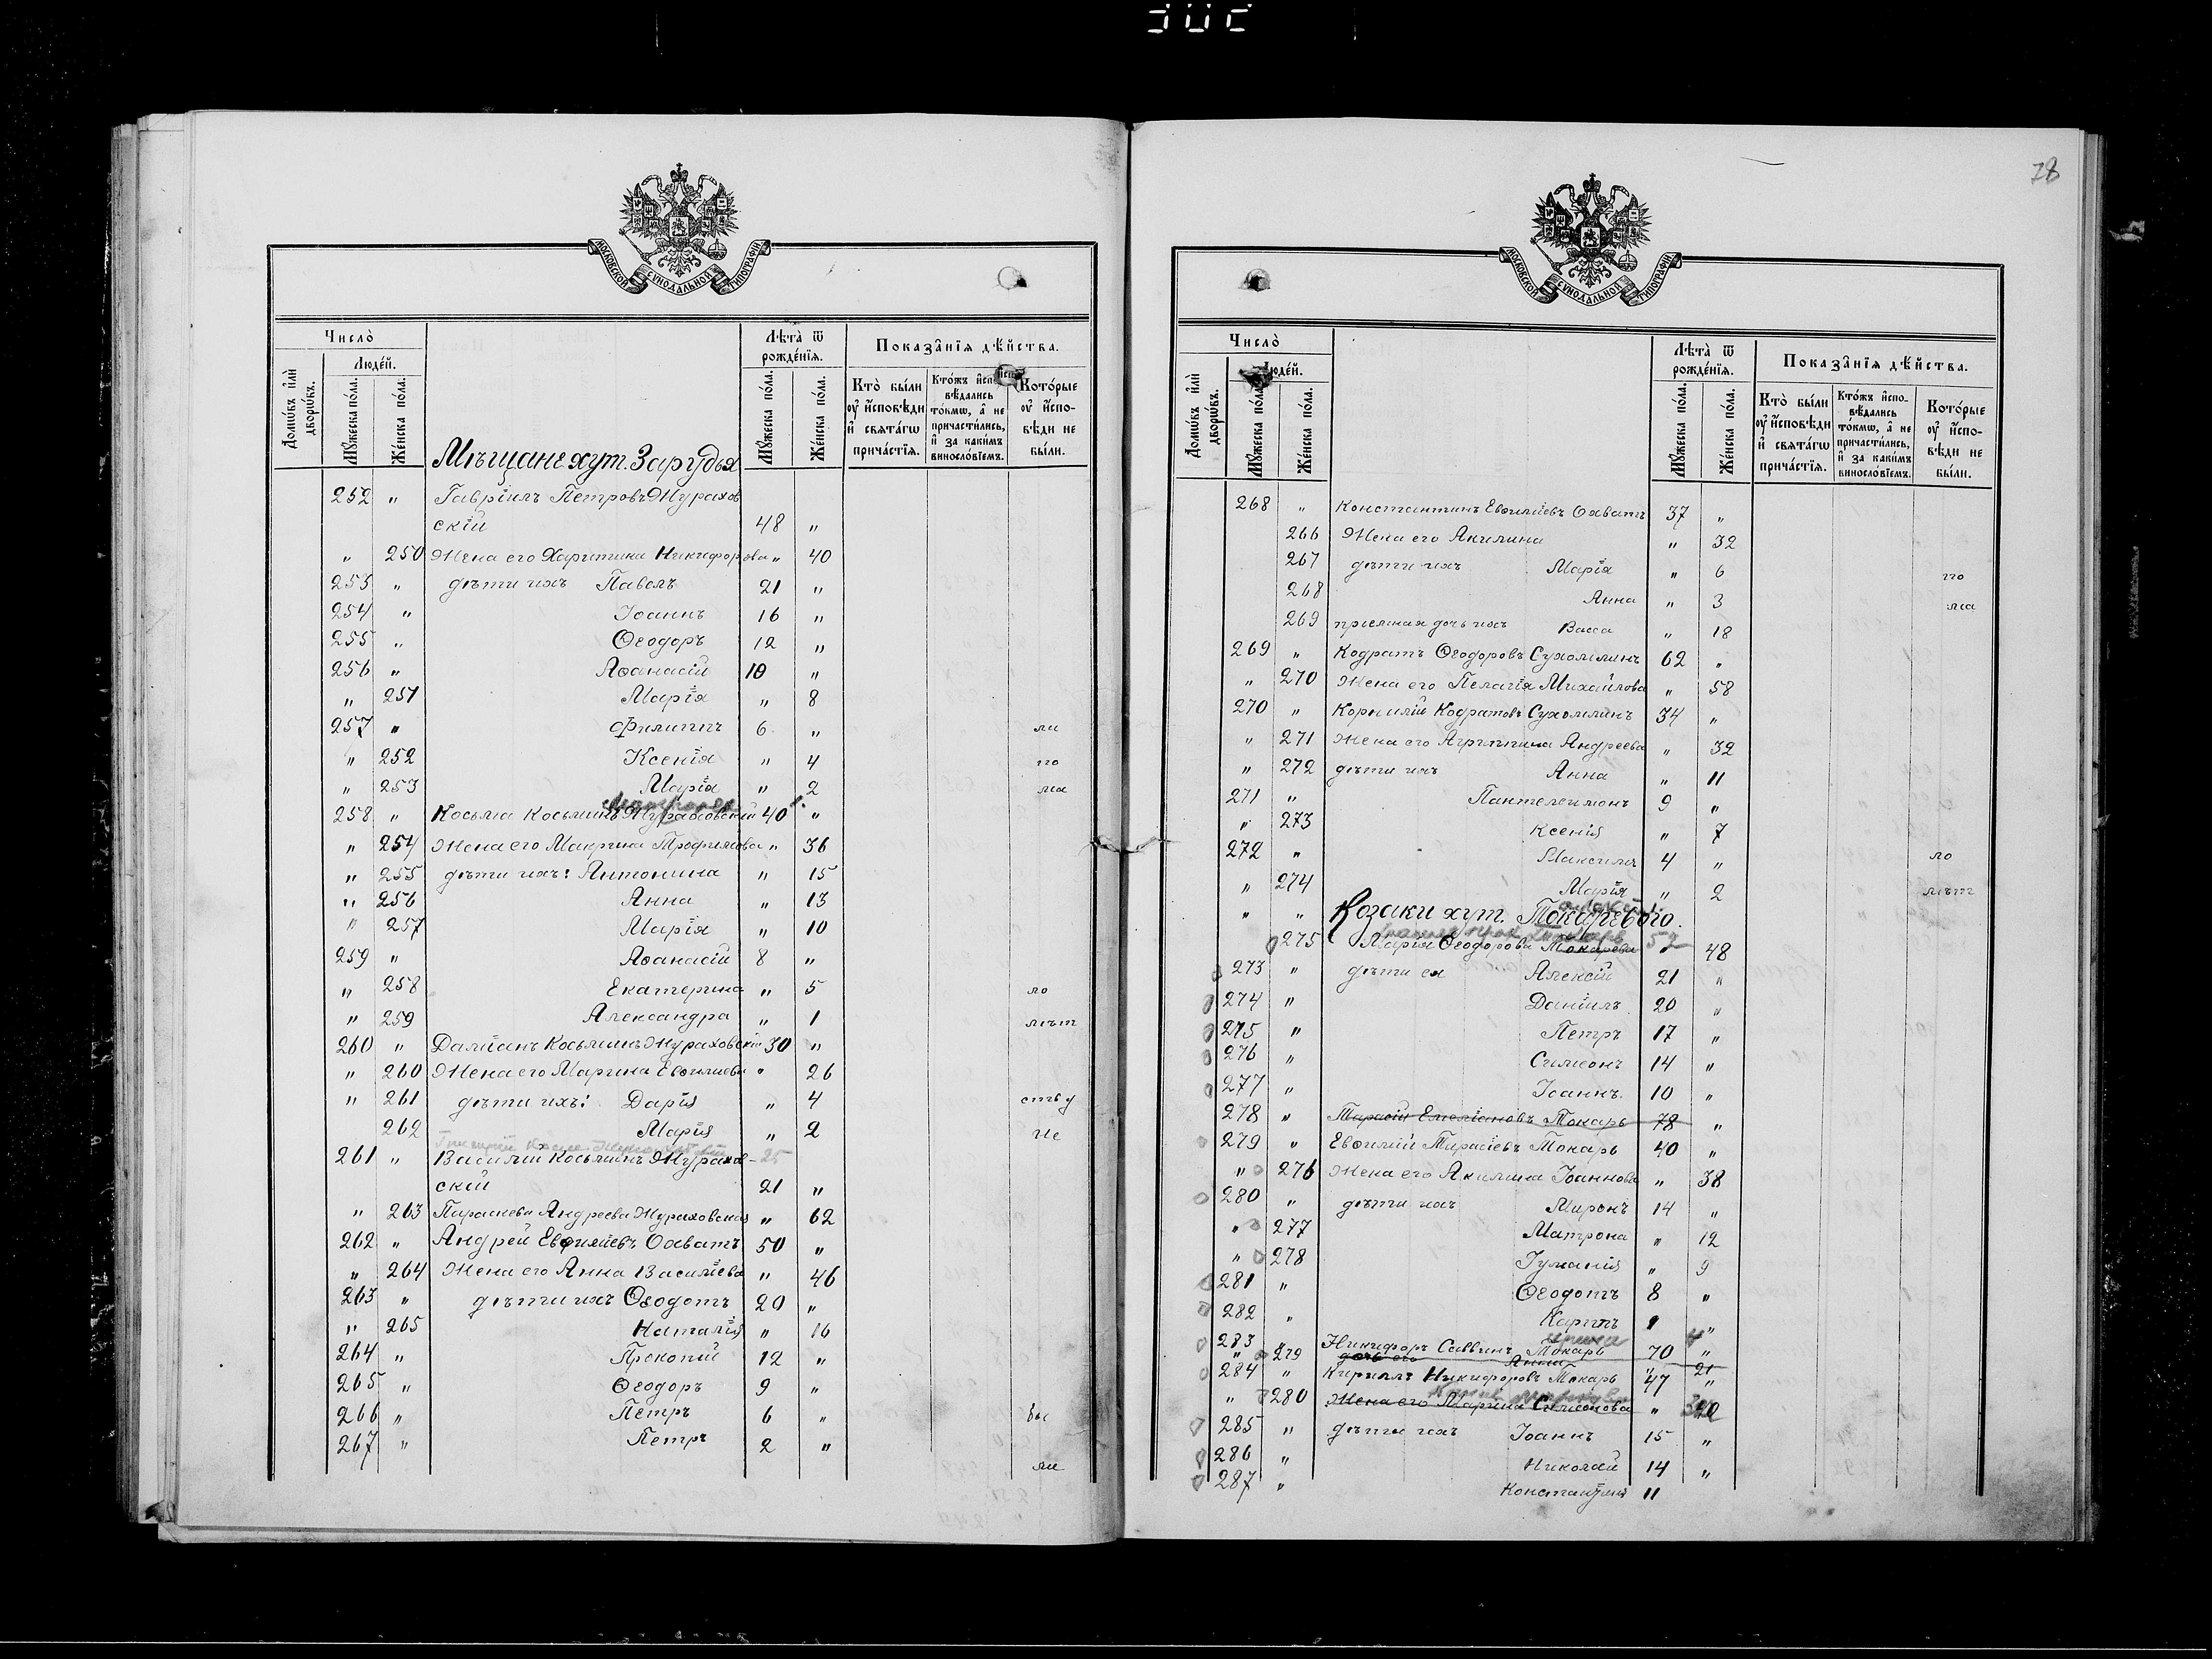 78
МОСКОВСКОЙ СѴНОДАЛЬНОЙ ТИПОГРАФІИ
Число̀
Людей.
Домѡвъ и҆лѝ дворѡвъ.
Мꙋжеска пола.
Же́нска по́ла.
Лѣта̀ ѿ рожде́нїѧ.
Мꙋжеска по́ла.
Же́нска по́ла.
Показа̑нїѧ дѣ́йства.
Кто̀ бы́ли оу҆ и҆́сповѣди и҆ свѧта́гѡ прича́стїѧ.
Кто́жъ и҆спо- вѣ́дались то́кмѡ, а҆ не причасти́лись, и҆ за каки́мъ винословїемъ.
Кото́рые оу҆ и҆́спо- вѣди не бы́ли.
Мѣщане хут. Зарудья
252 " Гавріилъ Петровъ Жирахов
скій 48 "
" 250 Жена его Харитина Никифорова " 40
253 " дѣти ихъ Павелъ 21 "
254 " Іоаннъ 16 "
255 " Ѳеодоръ 12 "
256 " Аѳанасій 10 "
" 251 Марія " 8
257 " Филиппъ 6 " ма
" 252 Ксенія " 4 ло
" 253 Марія " 2 ма
258 " Косьма Косьминъ Жураховскій 40 "
" 254 Жена его Макрина Трофимова " 36
" 255 дѣти ихъ: Антонина " 15
" 256 Анна " 13
" 257 Марія " 10
259 " Аѳанасій 8 "
" 258 Екатерина " 5 ло
" 259 Александра " 1 лѣт
260 " Даміанъ Косьминъ Жураховскій 30 "
" 260 Жена его Марина Евѳиміева " 26
" 261 дѣти ихъ: Дарія " 4 ству
262 Марія " 2 Не
261 " Василій Косьминъ Журахов- 25
скій 21 "
" 263 Параскева Андреева Жураховская " 62
262 " Андрей Евѳиміевъ Саватъ 50 "
" 264 Жена его Анна Василіева " 46
263 " дѣти ихъ Ѳеодотъ 20 "
" 265 Наталія " 16
264 " Прокопій 12 "
265 " Ѳеодоръ 9 "
266 " Петръ 6 " бы
267 " Петръ 2 " ли
МОСКОВСКОЙ СѴНОДАЛЬНОЙ ТИПОГРАФІИ
Число̀
Людей.
Домѡвъ и҆лѝ дворѡвъ.
Мꙋжеска пола.
Же́нска по́ла.
Лѣта̀ ѿ рожде́нїѧ.
Мꙋжеска по́ла.
Же́нска по́ла.
Показа̑нїѧ дѣ́йства.
Кто̀ бы́ли оу҆ и҆́сповѣди и҆ свѧта́гѡ прича́стїѧ.
Кто́жъ и҆спо- вѣ́дались то́кмѡ, а҆ не причасти́лись, и҆ за каки́мъ винословїемъ.
Кото́рые оу҆ и҆́спо- вѣди не бы́ли.
268 " Константинъ Евѳиміевъ Саватъ 37 "
266 Жена его Акилина " 32
267 дѣти ихъ Марія " 6 по
268 Анна " 3 ма
269 пріемная дочь ихъ Васса " 18
269 " Кодратъ Ѳеодоровъ Сухомлинъ 62 "
" 270 Жена его Пелагія Михайлова " 58
270 " Корнилій Кодратовъ Сухомлинъ 34 "
" 271 Жена его Агриппина Андреева " 32
" 272 дѣти ихъ Анна " 11
271 " Пантелеимонъ 9 "
" 273 Ксенія " 7
272 " Максимъ 4 " ло
" 274 Марія " 2 лѣт
" " Козаки хут. Токаревого.
275 Марія Ѳеодорова Токарева 52 " 48
273 " дѣти ея Алексій 21 "
274 " Даніилъ 20 "
275 " Петръ 17 "
276 " Симеонъ 14 "
277 " Іоаннъ. 10 "
278 " Тарасій Емеліановъ Токарь 78 "
279 " Евѳимій Тарасіевъ Токарь 40 "
" 276 Жена его Акилина Іоаннова " 38
280 " дѣти ихъ Миронъ 14 "
" 277 Матрона " 12
" 278 Іуліанія " 9
281 " Ѳеодотъ 8 "
282 " Карпъ 1 "
283 " Никифоръ Саввинъ Токарь 70 "
" 279 дочь его Анна " 21
284 " Кириллъ Никифоровъ Токарь 47 "
" 280 Жена его Марина Симеонова "
285 " дѣти ихъ Іоаннъ 15 "
286 " Николай 14 "
287 " Константинъ 11